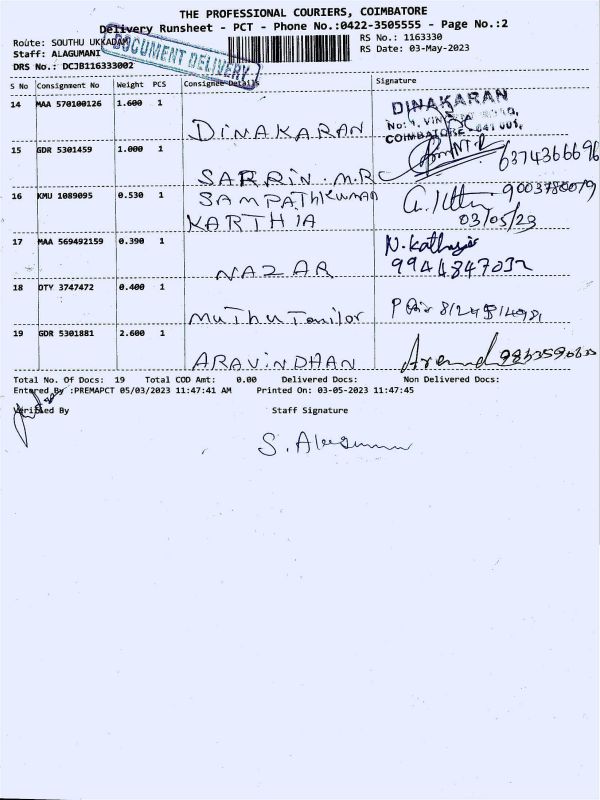 THE PROFESSIONAL COURIERS, COIMBATORE
Delivery Runsheet - PCT - Phone No.:0422-3505555 - Page No.:2
Route: SOUTHU UKKADAM
RS No.: 1163330
Staff: ALAGUMANI
RS Date: 03-May-2023
DOCUMENT DELIVERY
DRS No.: DCJB116333002
S No Consignment No Weight PCS Consignee Details Signature
14 MAA 570100126 1.600 1
DINAKARAN
DINAKARAN
COIMBATORE - 641 001.
15 GDR 5301459 1.000 1
SARRIN. M.R
6374366696
16 KMU 1089095 0.530 1
SAMPATHKUMAR
KARTHIA
9003780079
03/05/23
17 MAA 569492159 0.390 1
NAZAR
9944847032
18 DTY 3747472 0.400 1
MuThu Tamilor
19 GDR 5301881 2.600 1
ARAVINDHAN
Total No. Of Docs: 19 Total COD Amt: 0.00 Delivered Docs: Non Delivered Docs:
Entered By :PREMAPCT 05/03/2023 11:47:41 AM Printed On: 03-05-2023 11:47:45
Verified By Staff Signature